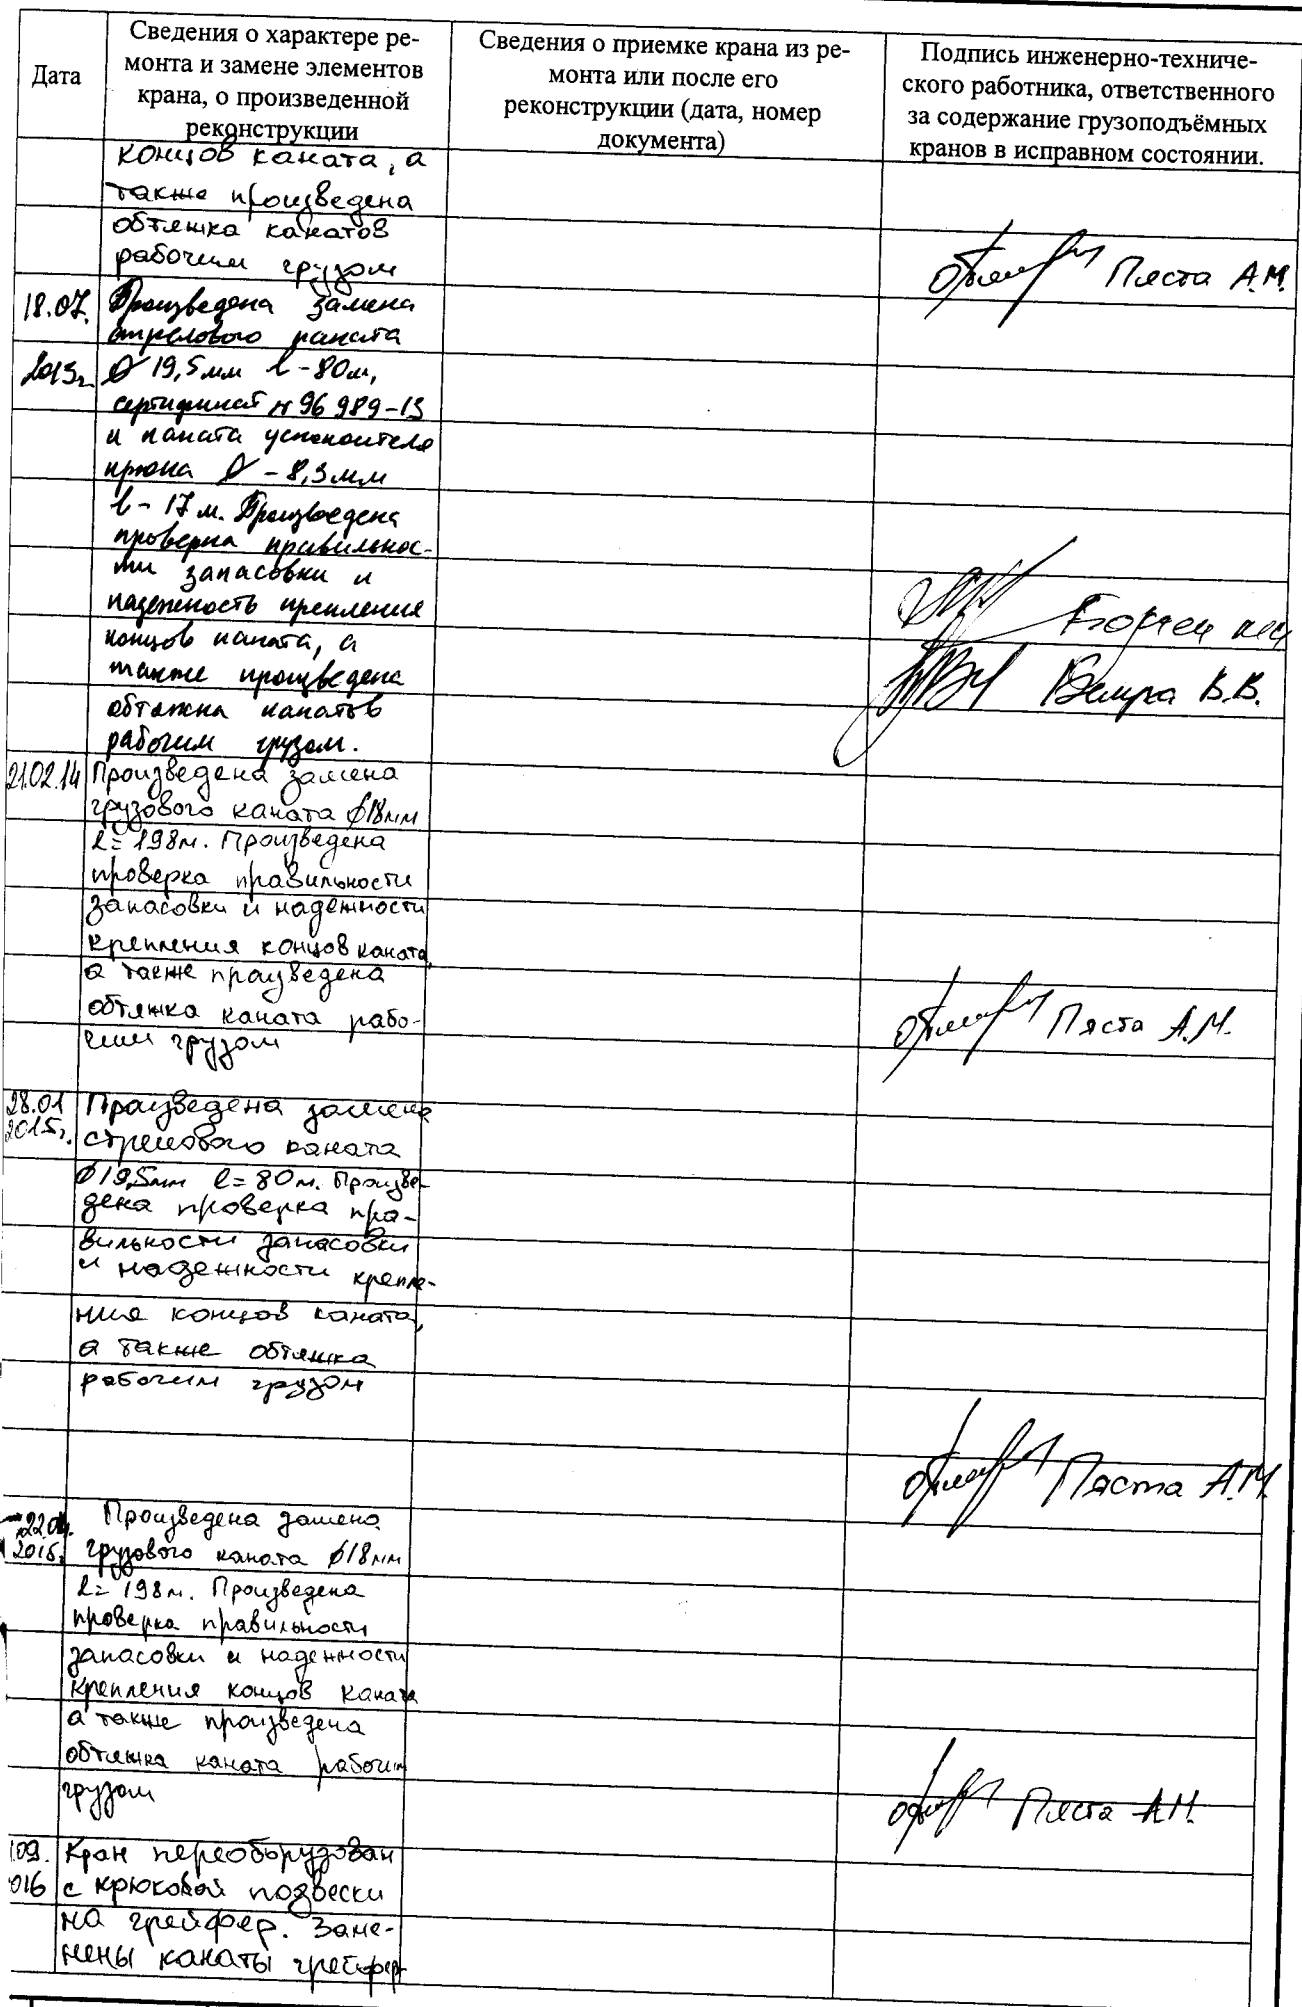 Дата
Сведения о характере ре-
монта и замене элементов
крана, о произведенной
реконструкции
Сведения о приемке крана из ре-
монта или после его
реконструкции (дата, номер
документа)
Подпись инженерно-техниче-
ского работника, ответственного
за содержание грузоподъёмных
кранов в исправном состоянии.
концов каната, а
также произведена
обтяжка канатов
рабочим грузом
Пяста А.М.
18.07. Произведена замена
стрелового каната
2013г. Ø 19,5мм l-80м,
сертификат №96989-13
и каната успокоителя
крюка Ø-8,3мм
l-17м. Произведена
проверка правильнос-
ти запасовки и
надежность крепления
концов каната, а
также произведена
обтяжка канатов
рабочим грузом.
В.В.
21.02.14 Произведена замена
грузового каната ϕ18мм
l=198м. Произведена
проверка правильности
запасовки и надежности
крепления концов каната,
а также произведена
обтяжка каната рабо-
чим грузом
Пяста А.М.
28.01 Произведена замена
2015г. стрелового каната
ϕ19,5мм l=80м. Произве-
дена проверка пра-
вильности запасовки
и надежности крепле-
ния концов каната,
а также обтяжка
рабочим грузом
Пяста А.М.
Произведена замена
2015г. грузового каната ϕ18мм
l=198м. Произведена
проверка правильности
запасовки и надежности
крепления концов каната
а также произведена
обтяжка каната рабочим
грузом
Пяста А.М.
09. Кран переоборудован
016 с крюковой подвески
на грейфер. Заме-
нены канаты грейфер-